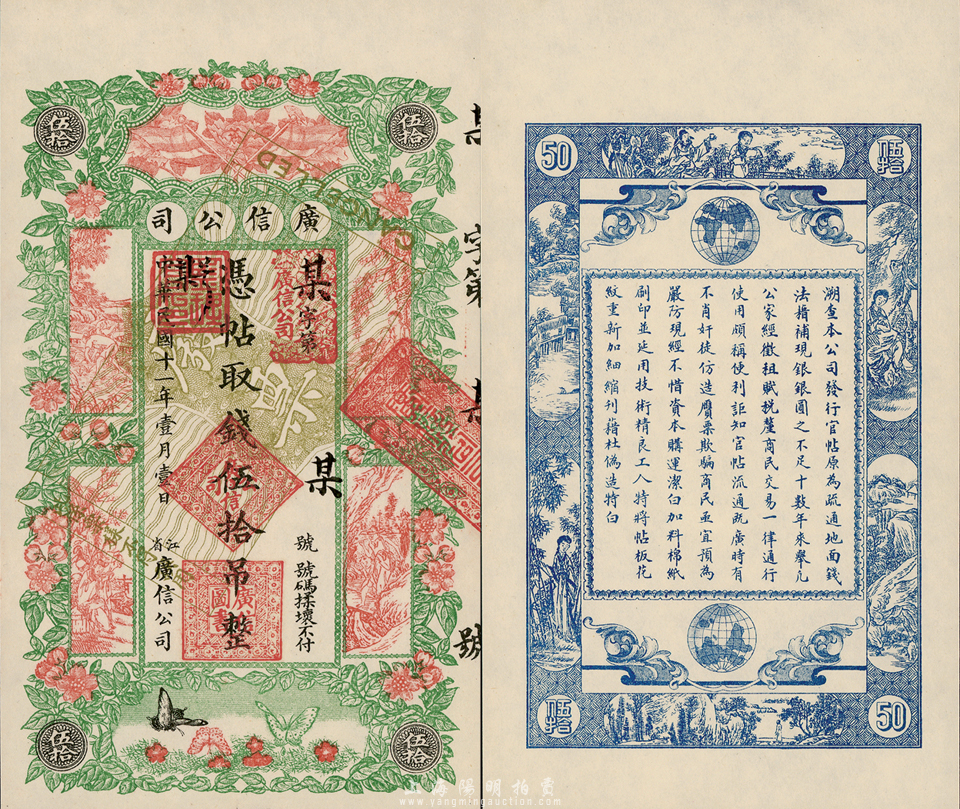 伍拾
伍拾
司公信廣
某字第
廣信公司
某
號
號碼揉壞不付
憑帖取錢伍拾吊整
某
中華民國十一年壹月壹日
江省
廣信公司
伍拾
伍拾
某
字第
某
號
CANCELLED
50
伍拾
溯查本公司發行官帖原為疏通地面錢
法揹補現銀銀圓之不足十數年來舉凡
公家經徵租賦稅釐商民交易一律通行
使用頗稱便利詎知官帖流通既廣時有
不肖奸徒仿造贋票欺騙商民亟宜預為
嚴防現經不惜資本購運潔白加料棉紙
刷印並延用技術精良工人特將帖板花
紋重新加細縮刊藉杜偽造特白
伍拾
50
www.yangmingauction.com